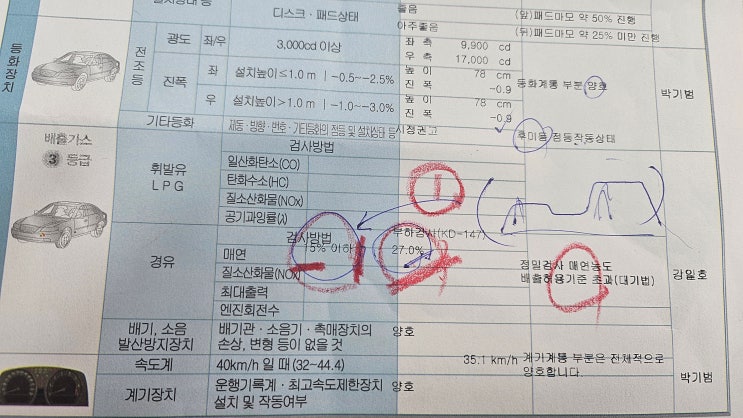 디스크·패드상태
좋음
아주좋음
(앞)패드마모 약 50% 진행
(뒤)패드마모 약 25% 미만 진행
등화장치
전조등
광도 좌/우 3,000cd 이상
좌 측 9,900 cd
우 측 17,000 cd
진폭
좌 설치높이≤1.0 m ㅣ-0.5~-2.5%
높 이 78 cm
진 폭 -0.9
우 설치높이>1.0 m ㅣ-1.0~-3.0%
높 이 78 cm
진 폭 -0.9
등화계통 부분 양호
박기범
기타등화
제동·방향·번호·기타등화의 점등 및 설치상태 등
시정권고
후미등 점등작동상태
배출가스
3 등급
휘발유
LPG
검사방법
일산화탄소(CO)
탄화수소(HC)
질소산화물(NOx)
공기과잉률(λ)
1
경유
검사방법
부하검사(KD-147)
매연
15% 이하
27.0%
질소산화물(NOx)
최대출력
엔진회전수
정밀검사 매연농도
배출허용기준 초과(대기법)
강일호
배기, 소음
발산방지장치
배기관·소음기·촉매장치의
손상, 변형 등이 없을 것
양호
속도계
40km/h 일 때 (32~44.4)
35.1 km/h
계기계통 부분은 전체적으로
양호합니다.
박기범
계기장치
운행기록계·최고속도제한장치
설치 및 작동여부
양호